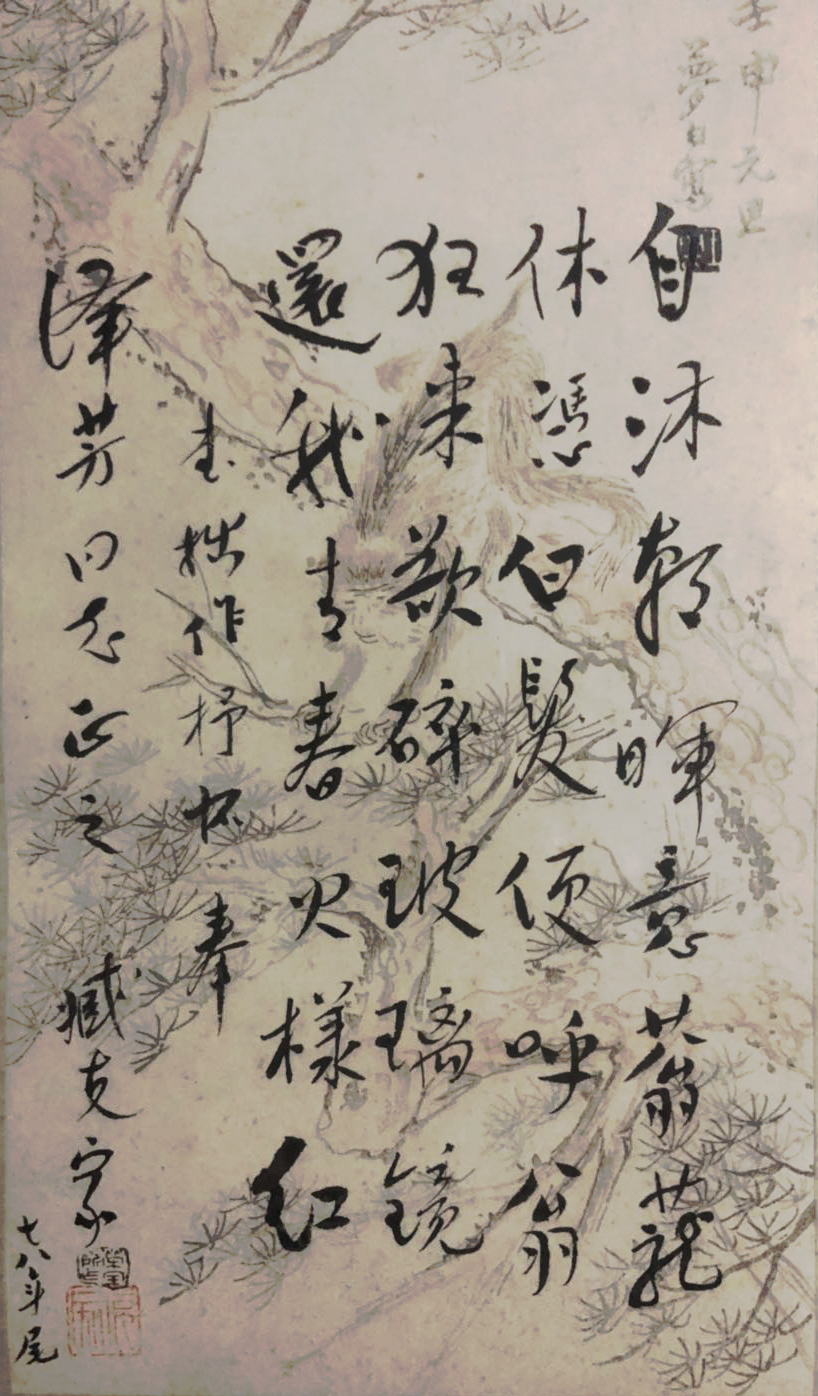 壬申元旦
夢白寫
自沐朝暉意蓊蘢
休憑白髮便呼翁
狂来欲碎玻璃鏡
還我青春火樣红
书拙作抒怀奉
泽芳同志正之 臧克家
七八年尾